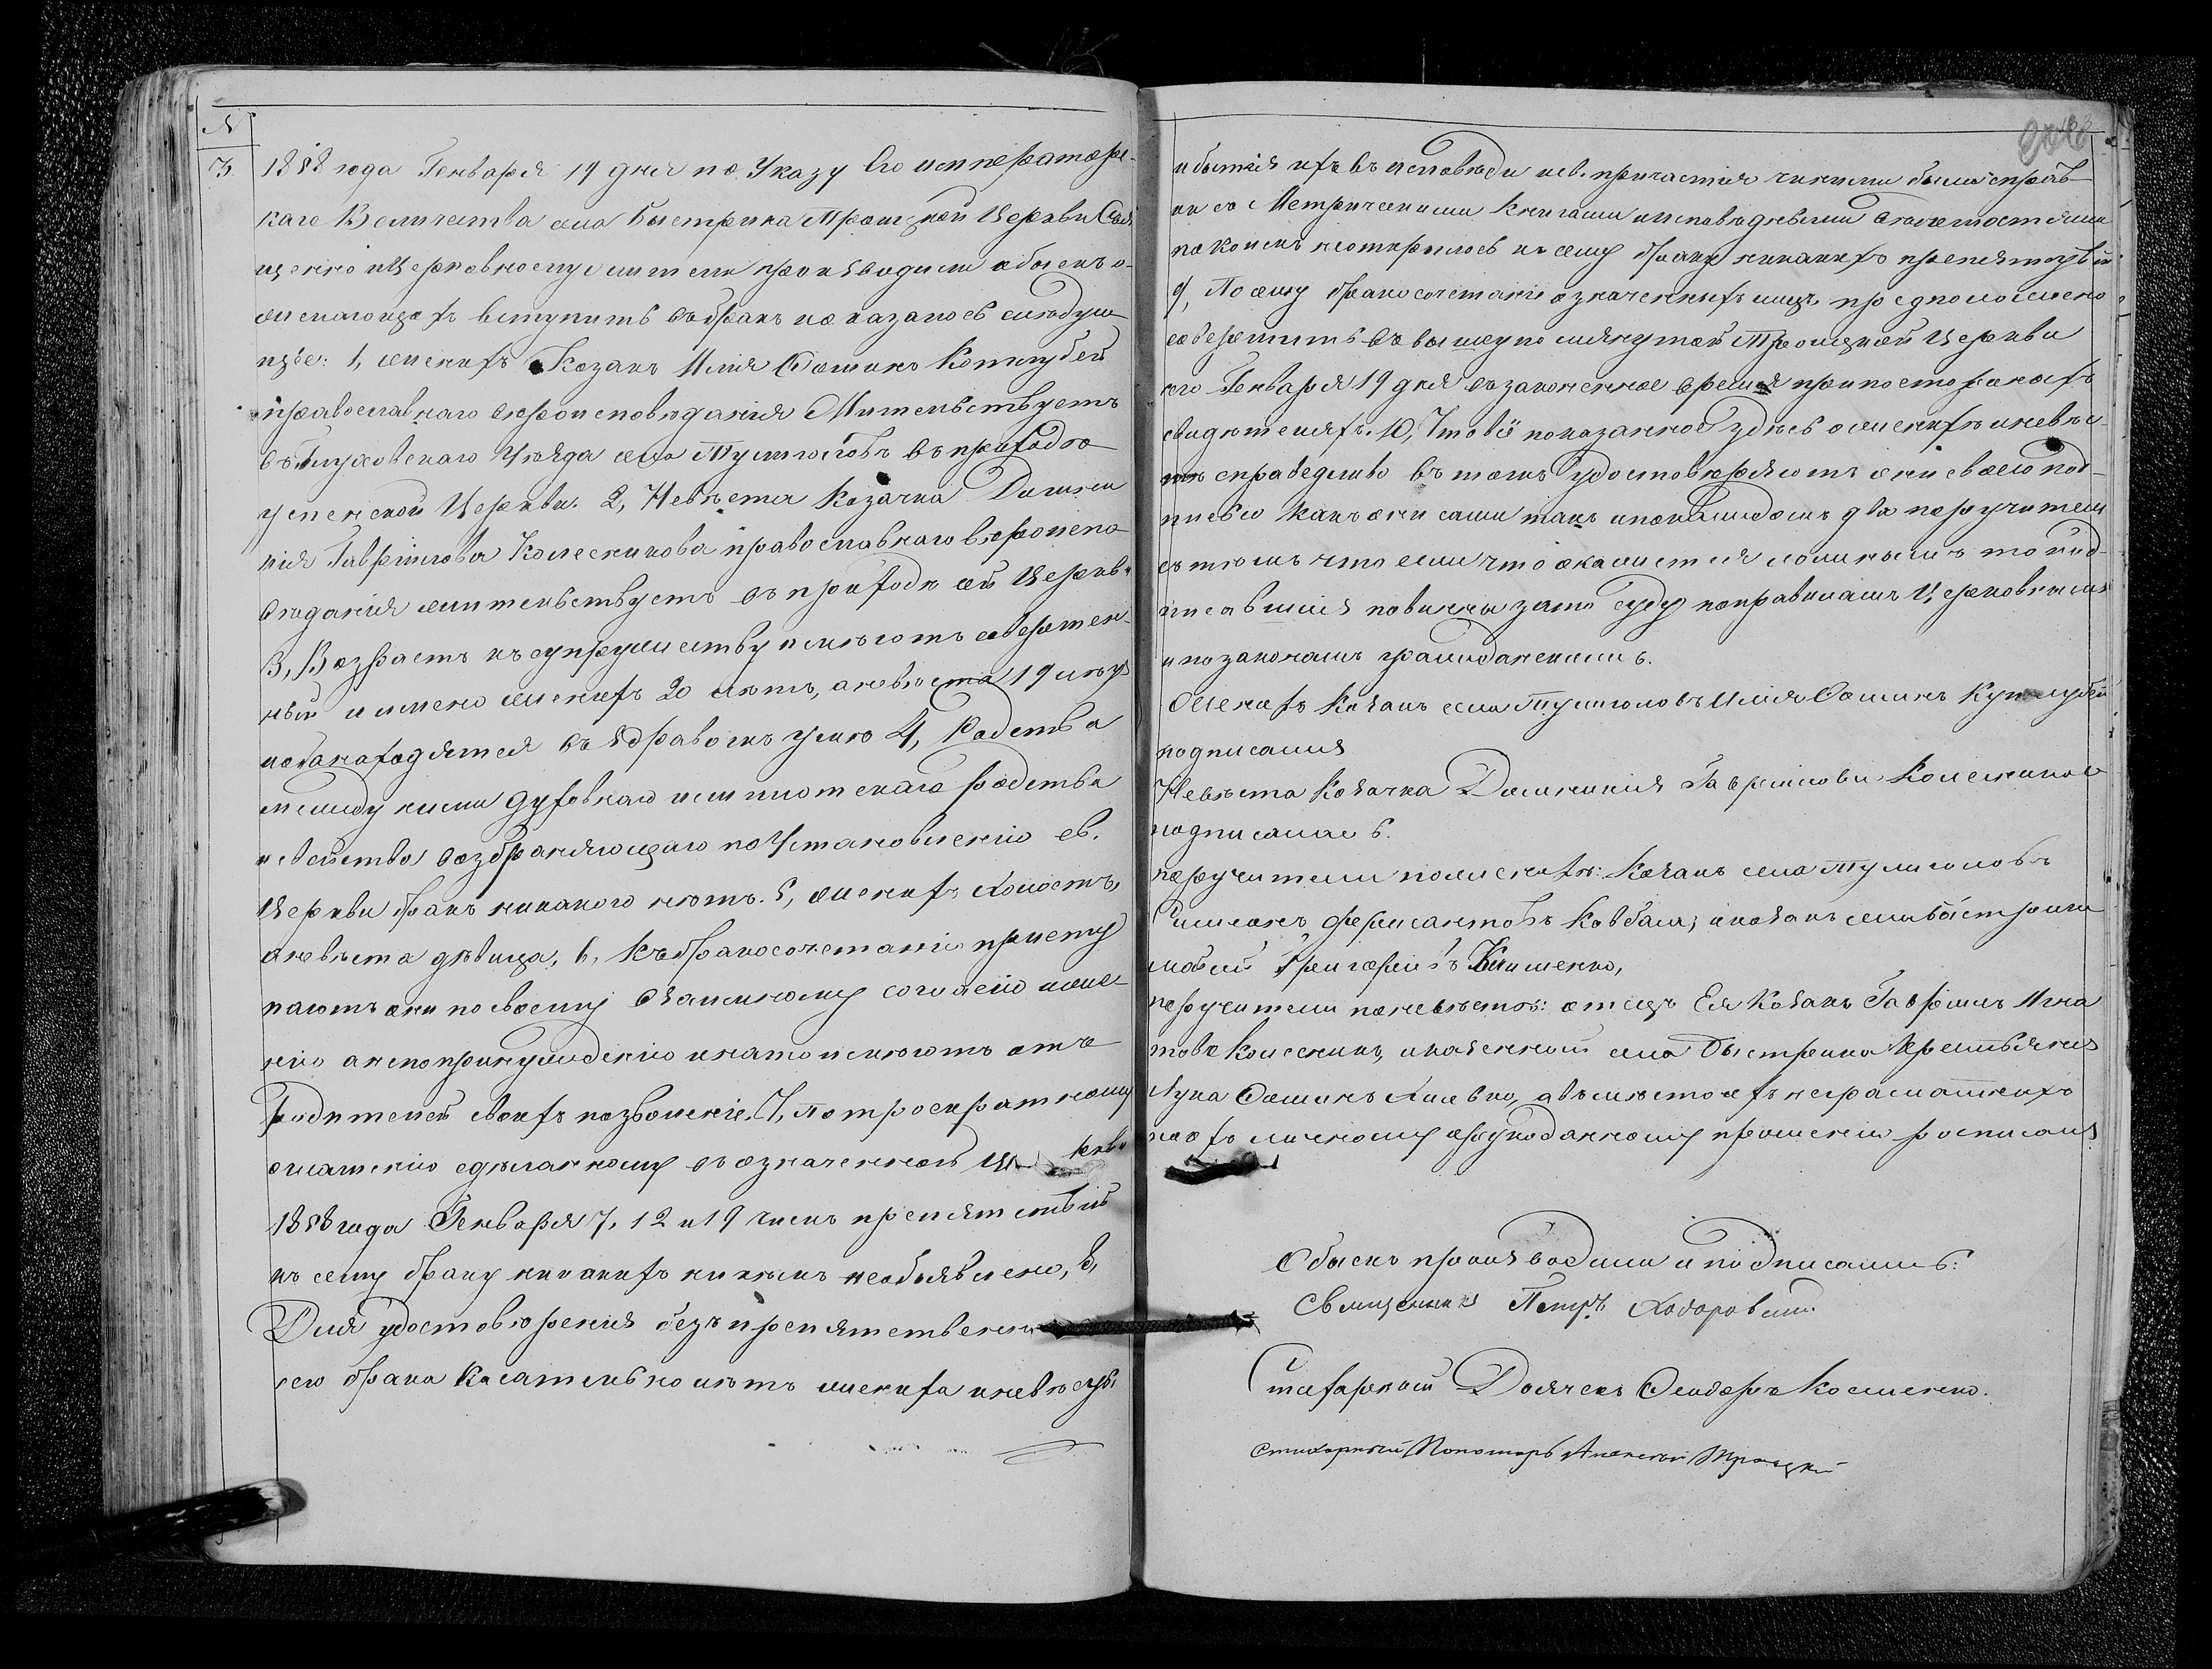 N
3
1858 года Генваря 19 дня по Указу Его императорс-
каго Величества села Быстрика Троицкой Церкви Свя
щенно и Церковнослужители производили обыскъ о
желающихъ вступить въ бракъ и оказалось слѣдую
щѣе: 1, женихъ Козакъ Илія Фоминъ Кочубей
православнаго вѣроисповѣданія Жительствуетъ
въ Глуховскаго Уѣзда села Тулиголовъ въ приходѣ
успенской Церкви. 2, Невѣста Козачка Домни
кія Гавріилова Колесникова православнаго вѣроиспо
вѣданія жительствуетъ въ приходѣ сей Церкви
3, Возрастъ къ супружеству имѣютъ совершен-
ный и имено женихъ 20 лѣтъ, а невѣста 19 и въ
оба находятся въ здравомъ умѣ 4, Родства
между ними духовнаго или плотскаго родства
и свойства возбраняющаго по Установленію св.
Церкви бракъ никакого нѣтъ. 5, женихъ холостъ,
а невѣста дѣвица, 6, Къ бракосочетанію присту
паютъ они по своему взаимному согласію и жела
нію а не по принужденію и на то имѣютъ отъ
Родителей своихъ позволеніе. 7, по троекратному
оглашенію сдѣланному въ означенной Церкви
1858 года Генваря 7, 12 и 19 числъ препятствій
къ сему браку никакихъ никѣмъ необъявлено, 8,
Для удостовѣренія безъ препятственности
сего брака Касательно лѣтъ жениха и невѣсты
и бытія ихъ въ исповѣди и св. причастія чинили были справ
ки съ Метрическими Книгами и исповѣдными вѣдомостями
по коимъ неоткрылось къ сему браку никакихъ препятствій
9, По сему бракосочетаніе означенныхъ лицъ предположено
совершить въ вышеупомянутой Троицкой Церкви
сего Генваря 19 дня въ законенное время при постороннихъ
свидѣтеляхъ. 10, Что всё показанное здѣсь о женихѣ и невѣс
тѣ справедливо въ томъ удостовѣряютъ они своею под-
писью какъ они сами такъ и по каждомъ два поручители
съ тѣмъ что если что окажется ложнымъ то под-
писавшія повинны зато суду по правиламъ Церковнымъ
и по законамъ гражданскимъ.
Женихъ Козакъ села Тулиголовъ Илія Фоминъ Кучубей
подписался
Невѣста Козачка Домникія Гавріилова Колесникова
подписалась.
поручители по женихѣ: Козакъ села Тулиголовъ
Симеонъ Ковбаса; и козакъ села Быстрика
Григорьевъ Клименко,
поручители по невѣстѣ: отецъ Ея Козакъ Гавріилъ Игна
товъ Колесникъ, и казенный села Быстрика Крестьянинъ
Лука Фоминъ а вмѣсто ихъ неграматныхъ
по ихъ личному и рукоданному прошенію росписался
Обыскъ производили и подписались:
Священникъ Петръ Ходоровскій.
Стихарный Дьячекъ Феодоръ
Стихарный Пономарь Алексій Троицкій